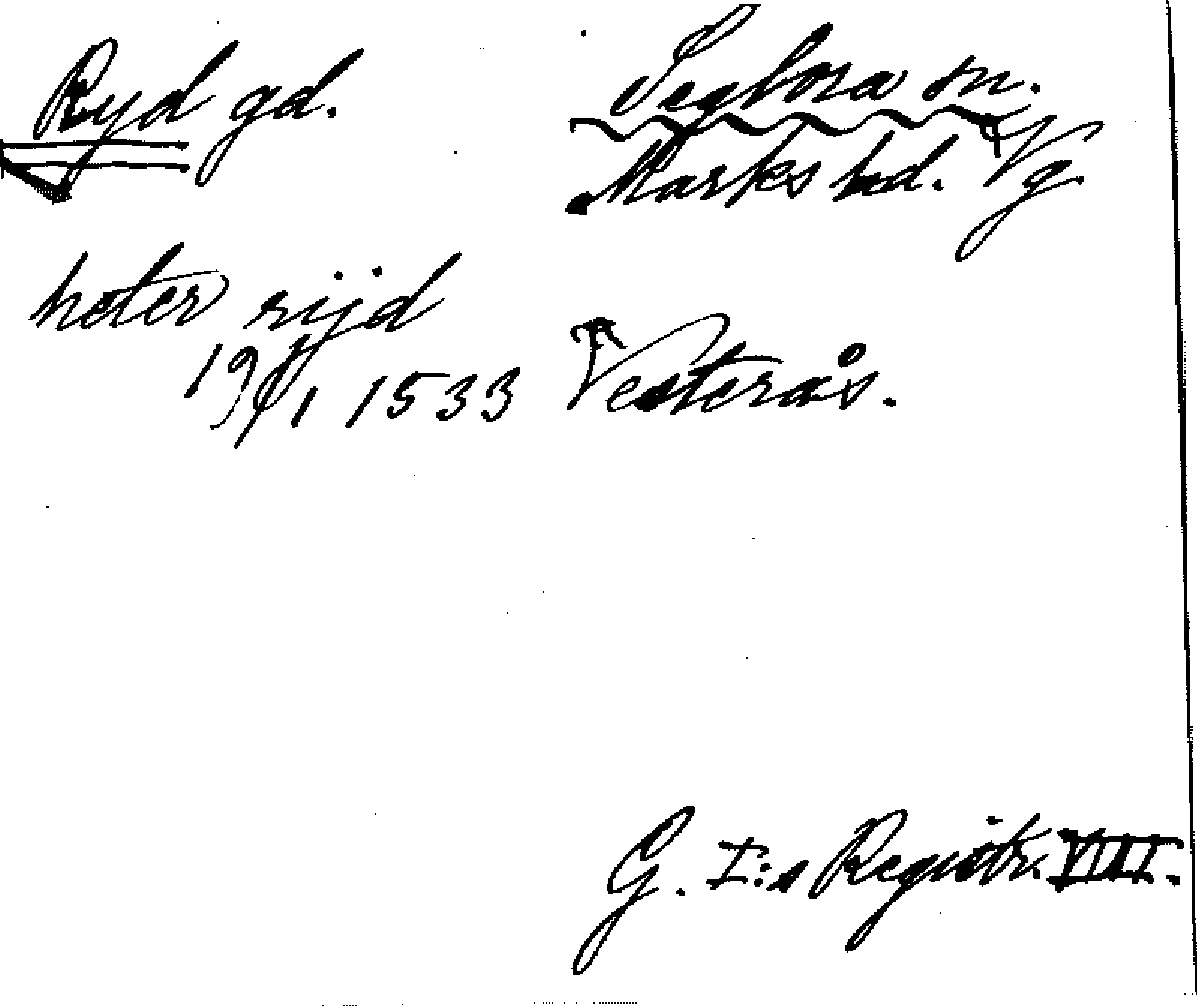 Ryd gd. Seglora sn.
Marks hd. Vg.
heter rijd
19/1 1533 Vesterås.
G. I:s Registr. VIII.